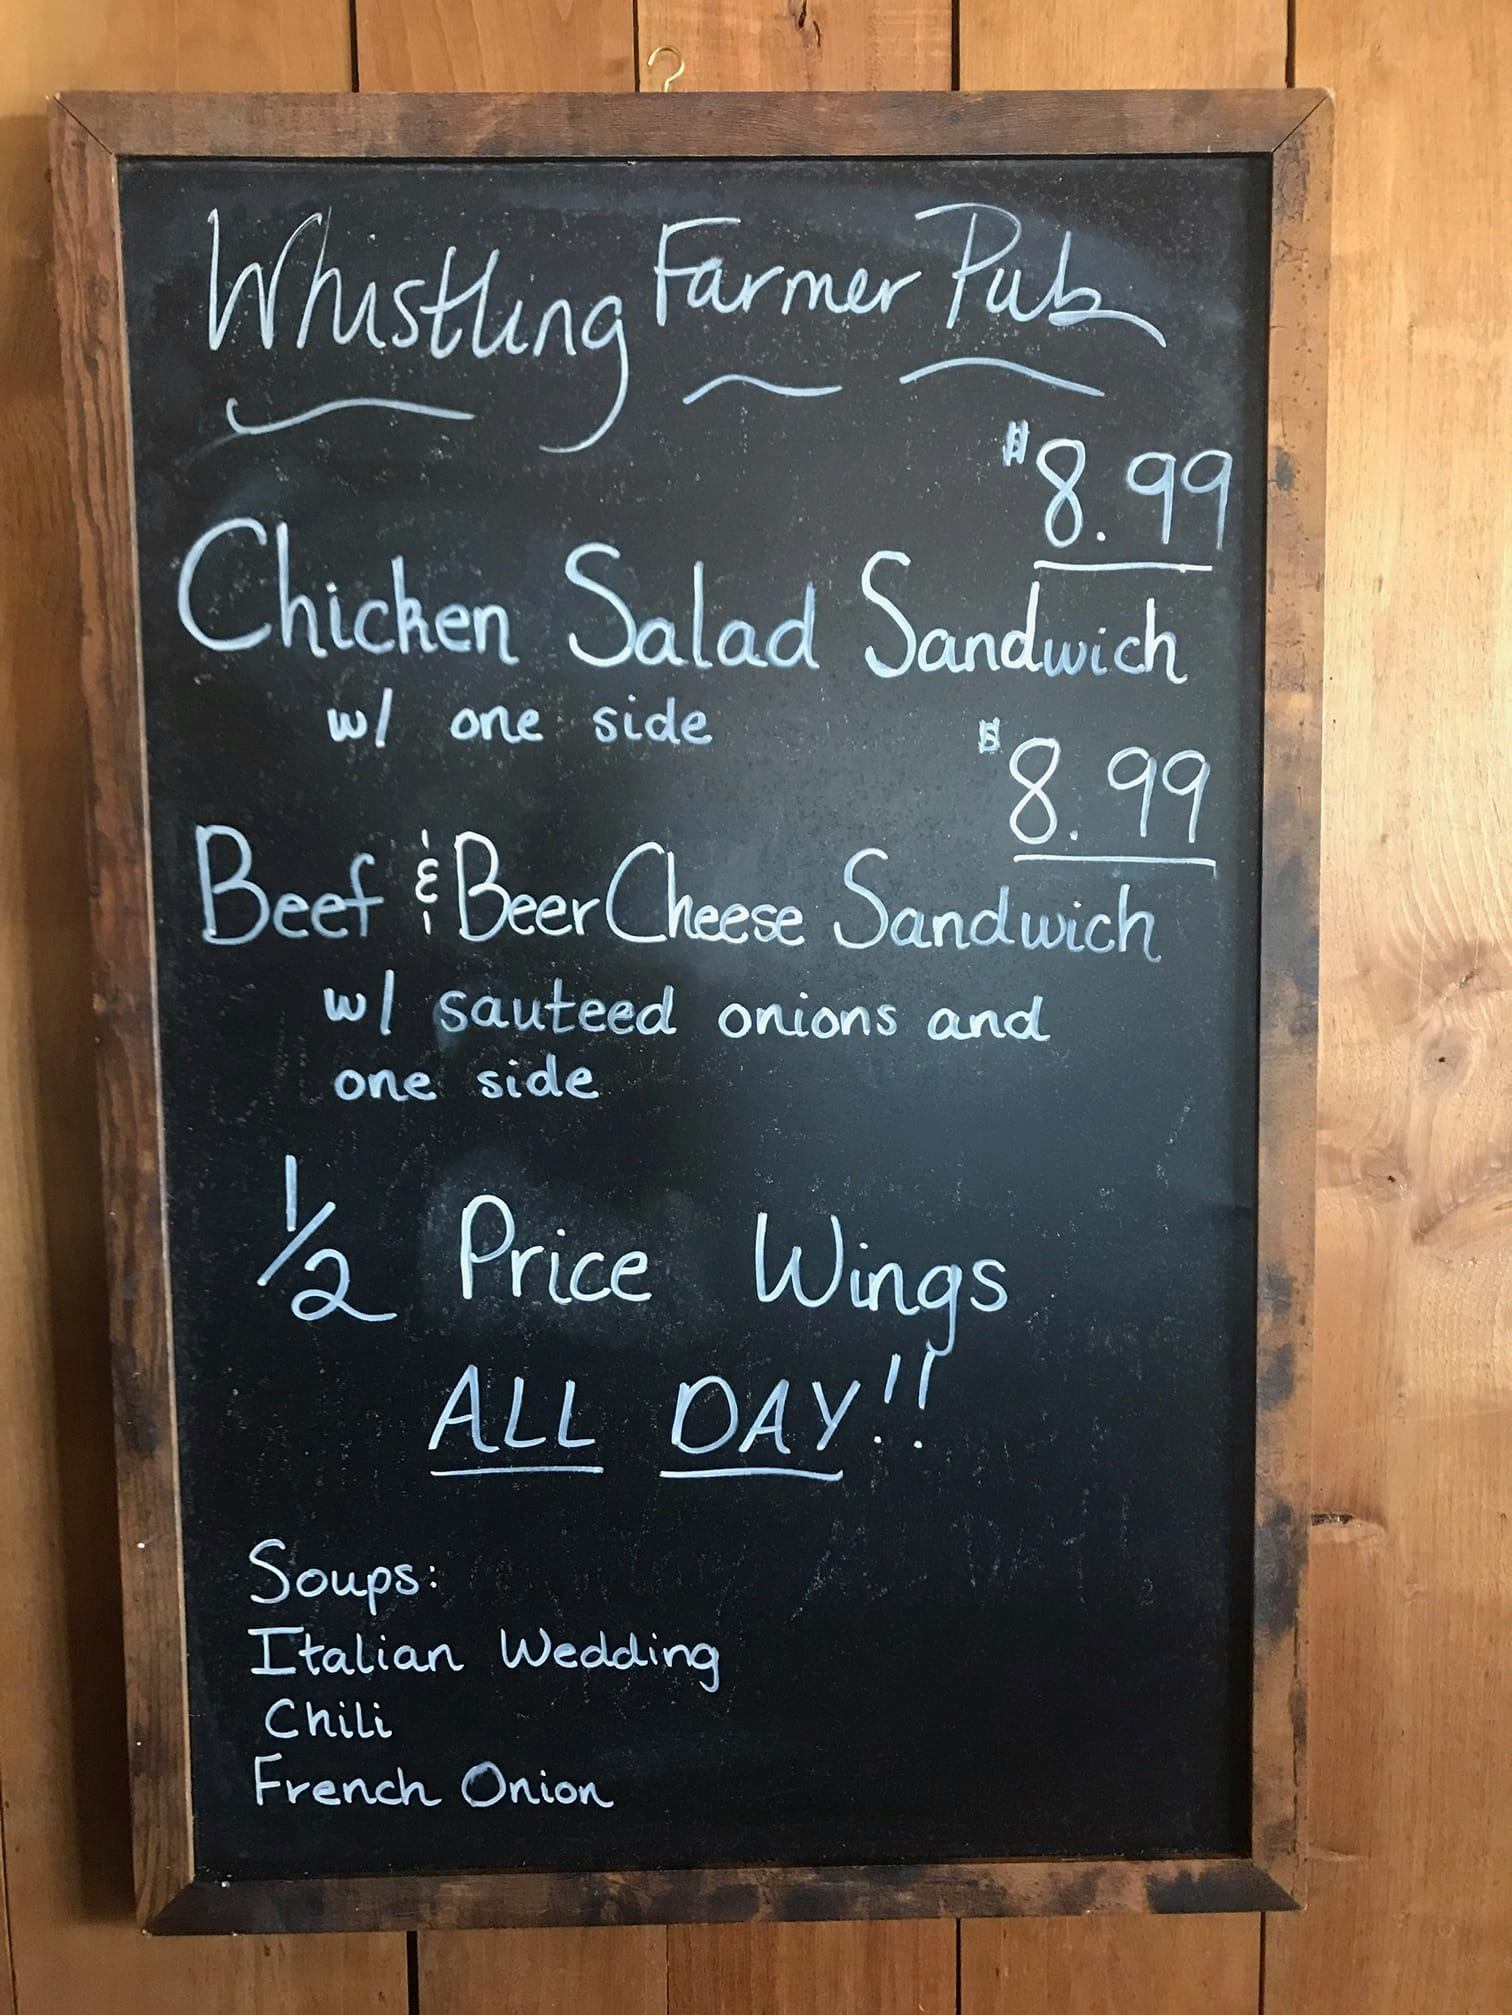 Whistling Farmer Pub
$8.99
Chicken Salad Sandwich
w/ one side
$8.99
Beef & Beer Cheese Sandwich
w/ sauteed onions and
one side
1/2 Price Wings
ALL DAY!!
Soups:
Italian Wedding
Chili
French Onion